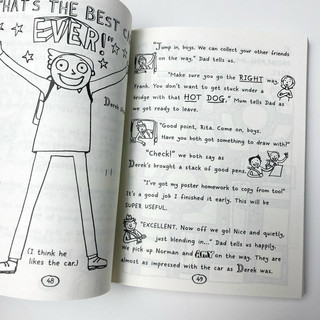 THAT'S THE BEST
EVER!"
Derek
(I think he
likes the car.)
48
"Jump in, boys. We can collect your other friends
on the way," Dad tells us.
"Make sure you go the RIGHT way,
Frank. You don't want to get stuck under a
bridge with that HOT DOG," Mum tells Dad as
we get ready to leave.
"Good point, Rita. Come on, boys.
Have you both got something to draw with?"
"Check!" we both say as
Derek's brought a stack of good pens.
"I've got my poster homework to copy from too!"
It's a good job I finished it early. This will be
SUPER USEFUL.
"EXCELLENT. Now off we go! Nice and quietly,
just blending in..." Dad tells us happily.
We pick up Norman and on the way. They are
almost as impressed with the car as Derek was.
49